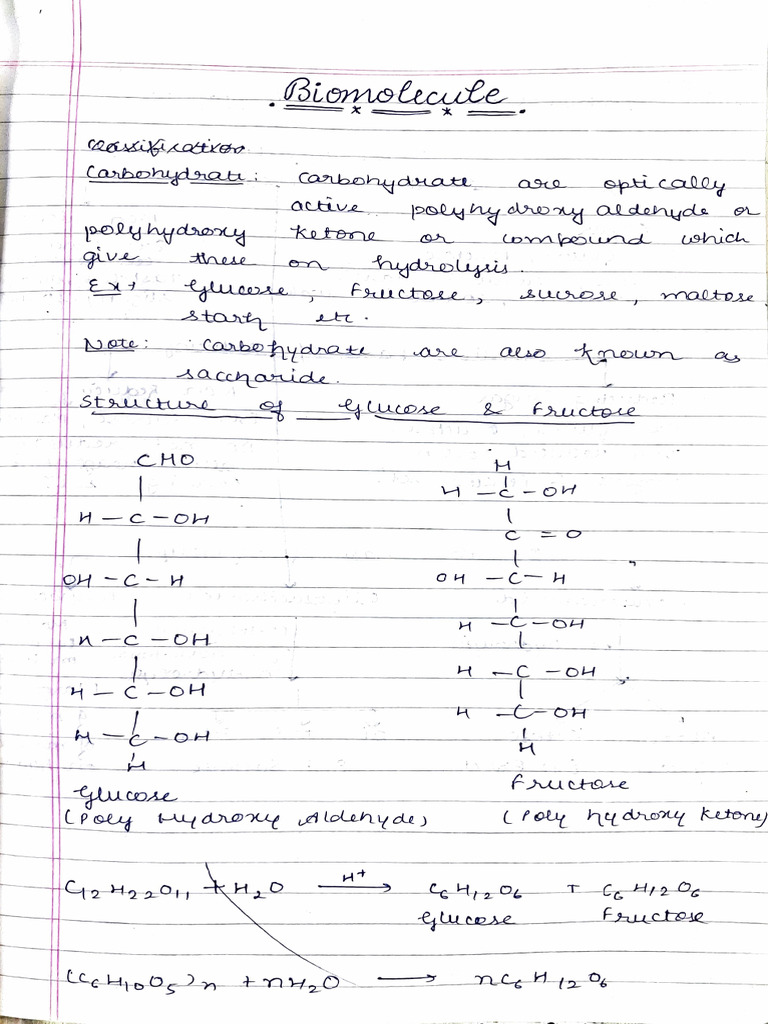 Biomolecule
Classification
Carbohydrate: carbohydrate are optically
active polyhydroxy aldehyde or
polyhydroxy ketone or compound which
give these on hydrolysis.
Ex→ Glucose, Fructose, sucrose, maltose
starh etc.
Note: Carbohydrate are also known as
saccharide.
Structure of Glucose & Fructose
CHO
|
H - C - OH
|
OH - C - H
|
H - C - OH
|
H - C - OH
|
H - C - OH
|
H
Glucose
(Poly Hydroxy Aldehyde)
H
|
H - C - OH
|
C = O
|
OH - C - H
|
H - C - OH
|
H - C - OH
|
H - C - OH
|
H
Fructose
(Poly hydroxy ketone)
C12H22O11 + H2O H+ → C6H12O6 + C6H12O6
Glucose Fructose
(C6H10O5)n + nH2O → nC6H12O6